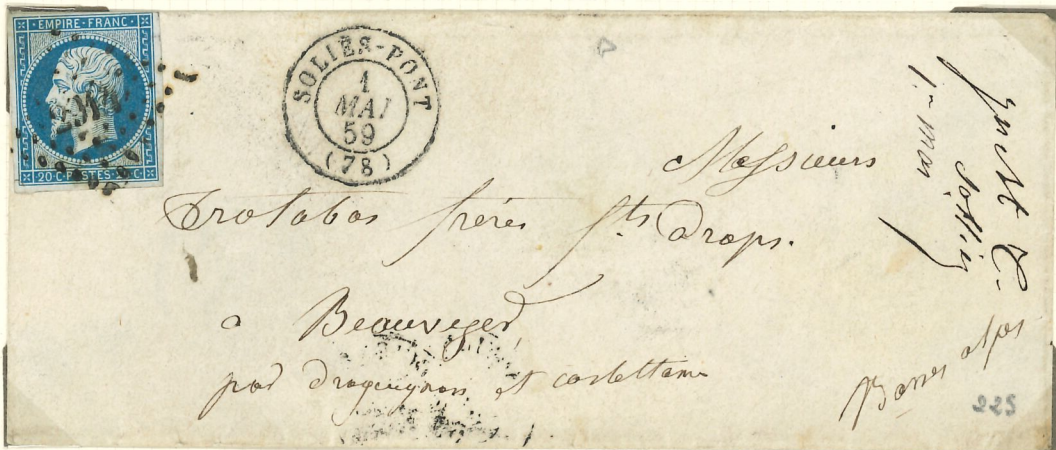 EMPIRE · FRANC
20 · C · POSTES · 20 · C
SOLLIÈS-PONT
1
MAI
59
(78)
Messieurs
Trotabas frères fts Draps.
à Beauvezer,
par draguignan et castellane
Basses alpes
1er mai
225